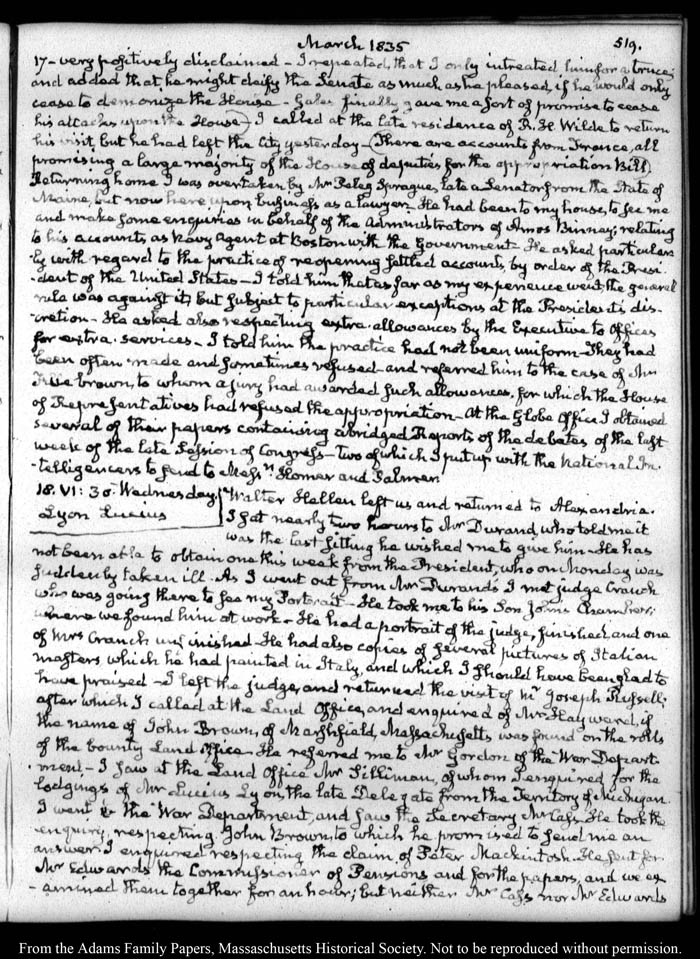 March 1835
519.
17 - very positively disclaimed - I repeated, that I only intreated him for a truce;
and added that he might deify the Senate as much as he pleased, if he would only
cease to demonize the House - Gales finally gave me a sort of promise to cease
his attacks upon the House - I called at the late residence of R. H. Wilde to return
his visit, but he had left the City yesterday - (There are accounts from France, all
promising a large majority of the House of deputies for the appropriation Bill)
Returning home I was overtaken by Mr Peleg Sprague, late a Senator from the State of
Maine, but now here upon business as a lawyer. He had been to my house, to see me
and make some enquiries in behalf of the Administrators of Amos Binney; relating
to his accounts, as Navy Agent at Boston with the Government - He asked particular
-ly with regard to the practice of reopening settled accounts, by order of the Presi-
-dent of the United States - I told him that as far as my experience went, the general
rule was against it, but subject to particular exceptions at the President's dis-
-cretion - He asked also respecting extra allowances by the Executive to Officers
for extra services - I told him the practice had not been uniform - They had
been often made and sometimes refused - and referred him to the case of Mr
brown, to whom a jury had awarded such allowances, for which the House
of Representatives had refused the appropriation - At the Globe Office I obtained
several of their papers containing abridged Reports of the debates of the last
week of the late Session of Congress - two of which I put up with the National In-
-telligencers to send to Messrs Homer and Palmer
18. VI: 30. Wednesday.
Lyon Lucius
Walter Hellen left us and returned to Alexandria.
I sat nearly two hours to Mr Durand, who told me it
was the last sitting he wished me to give him - He has
not been able to obtain one this week from the President, who on Monday was
suddenly taken ill - As I went out from Mr Durand's I met judge Cranch
who was going there to see my Portrait - He took me to his Son John's Chamber;
where we found him at work - He had a portrait of the judge, finished, and one
of Mrs Cranch unfinished - He had also copies of several pictures of Italian
masters which he had painted in Italy, and which I should have been glad to
have praised - I left the judge, and returned the visit of Mr Joseph Russell;
after which I called at the Land Office, and enquired of Mr Hayward, if
the name of John Brown, of Marshfield, Massachusetts, was found on the rolls
of the bounty Land Office - He referred me to Mr Gordon of the War Depart-
-ment - I saw at the Land Office Mr Silliman, of whom I enquired for the
lodgings of Mr Lucius Lyon the late Delegate from the Territory of Michigan.
I went to the War Department, and saw the Secretary Mr Cass. He took the
enquiry, respecting John Brown, to which he promised to send me an
answer. I enquired respecting the claim of Peter Mackintosh. He sent for
Mr Edwards the Commissioner of Pensions and for the papers, and we ex-
-amined them together for an hour; but neither Mr Cass nor Mr Edwards
From the Adams Family Papers, Massachusetts Historical Society. Not to be reproduced without permission.